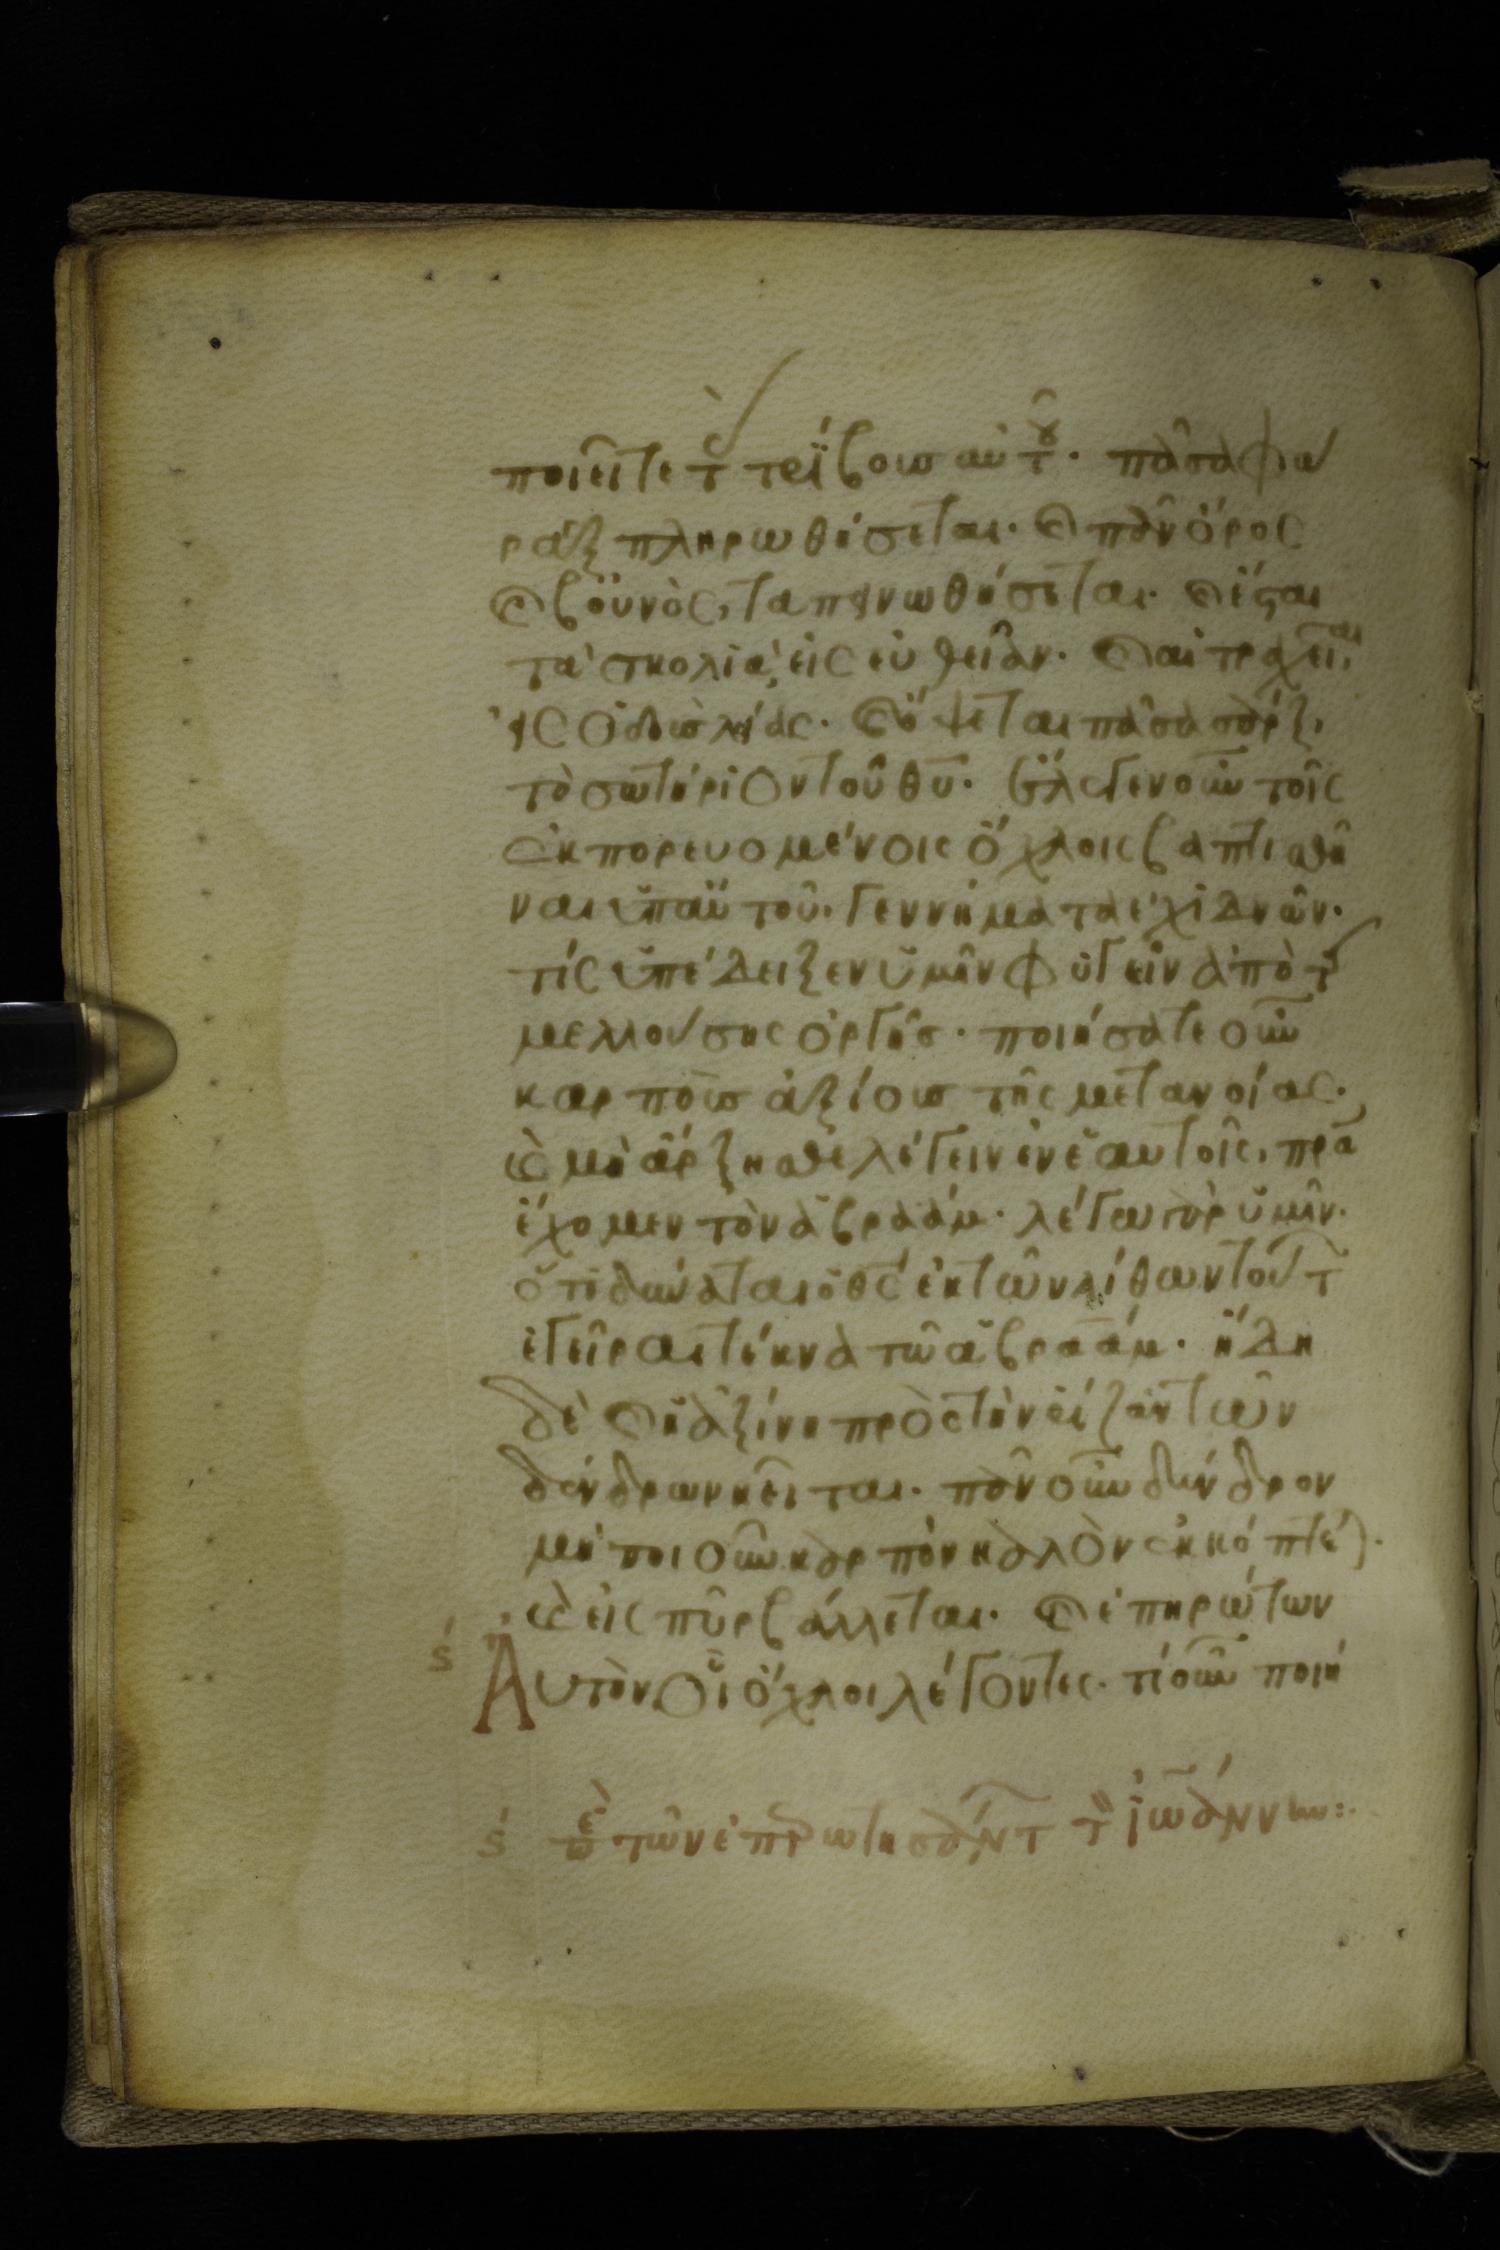 ποιεῖτε τ̀ τρίβους αὐτοῦ. πᾶσα φά
ραξ πληρωθήσεται. καὶ πᾶν ὄρος
καὶ βουνὸς, ταπεινωθήσεται. καὶ ἔσται
τὰ σκολιὰ, εἰς εὐθεῖαν. καὶ αἱ τραχεῖαι,
εἰς ὁδοὺς λείας. καὶ ὄψεται πᾶσα σὰρξ,
τὸ σωτήριον τοῦ θυ. ἔλεγεν οὖν τοῖς
ἐκπορευομένοις ὄχλοις βαπτισθῆ
ναι ὑπ αὐτοῦ. Γεννήματα ἐχιδνῶν.
τίς ὑπέδειξεν ὑμῖν φυγεῖν ἀπὸ τ
μελλούσης ὀργῆς. ποιήσατε οὖν
καρποὺς ἀξίους τῆς μετανοίας.
καὶ μὴ ἄρξησθε λέγειν ἐν ἑαυτοῖς, πρα
ἔχομεν τὸν ἀβραάμ. λέγω γὰρ ὑμῖν.
ὅτι δύναται ὁ θς ἐκ τῶν λίθων τούτ
ἐγεῖραι τέκνα τῶ ἀβραάμ. ἤδη
δὲ καὶ ἡ ἀξίνη πρὸς τὴν ῥίζαν τῶν
δένδρων κεῖται. πᾶν οὖν δένδρον
μὴ ποιοῦν καρπὸν καλὸν ἐκκόπτε).
καὶ εἰς πῦρ βάλλεται. καὶ ἐπηρώτων
ς Αὐτὸν οἱ ὄχλοι λέγοντες. τί οὖν ποιή
ς πε τῶν ἐπερωτησάντ τ ἰωάννην:.